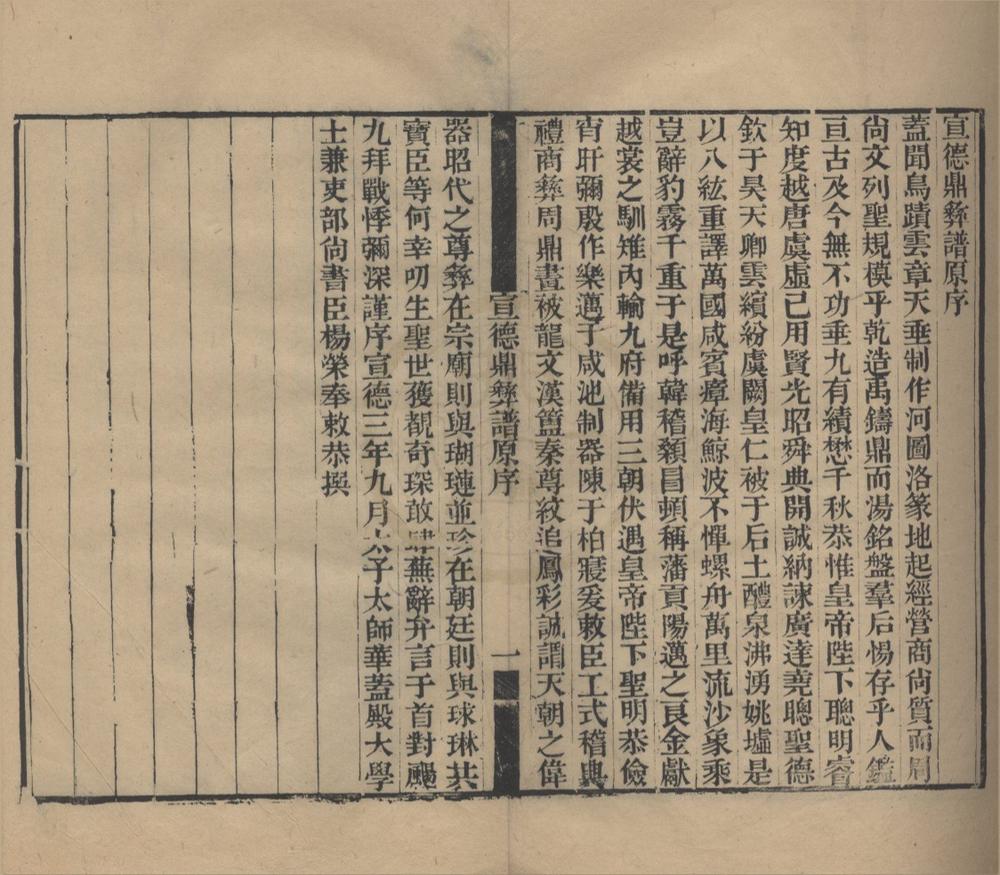 宣德鼎彝譜原序
蓋聞鳥蹟雲章天垂制作河圖洛篆地起經營商尚質而周
尚文列聖規模乎乾造禹鑄鼎而湯銘盤羣后惕存乎人鑑
亘古及今無不功垂九有績懋千秋恭惟皇帝陛下聰明睿
知度越唐虞虛己用賢光昭舜典開誠納諫廣達堯聰聖德
欽于昊天卿雲繽紛虞闕皇仁被于后土醴泉沸湧姚墟是
以八紘重譯萬國咸賓瘴海鯨波不憚螺舟萬里流沙象乘
豈辭豹霧千重于是呼韓稽顙冒頓稱藩貢陽邁之良金獻
越裳之馴雉內輸九府備用三朝伏遇皇帝陛下聖明恭儉
宵旰彌殷作樂邁于咸池制器陳于柏寢爰敕臣工式稽典
禮商彝周鼎畫被龍文漢簠秦尊紋追鳳彩誠謂天朝之偉
宣德鼎彝譜原序 一
器昭代之尊彝在宗廟則與瑚璉並珍在朝廷則與球琳共
寶臣等何幸叨生聖世獲覩奇琛敢肆蕪辭弁言于首對颺
九拜戰悸彌深謹序宣德三年九月太子太師華蓋殿大學
士兼吏部尚書臣楊榮奉敕恭撰